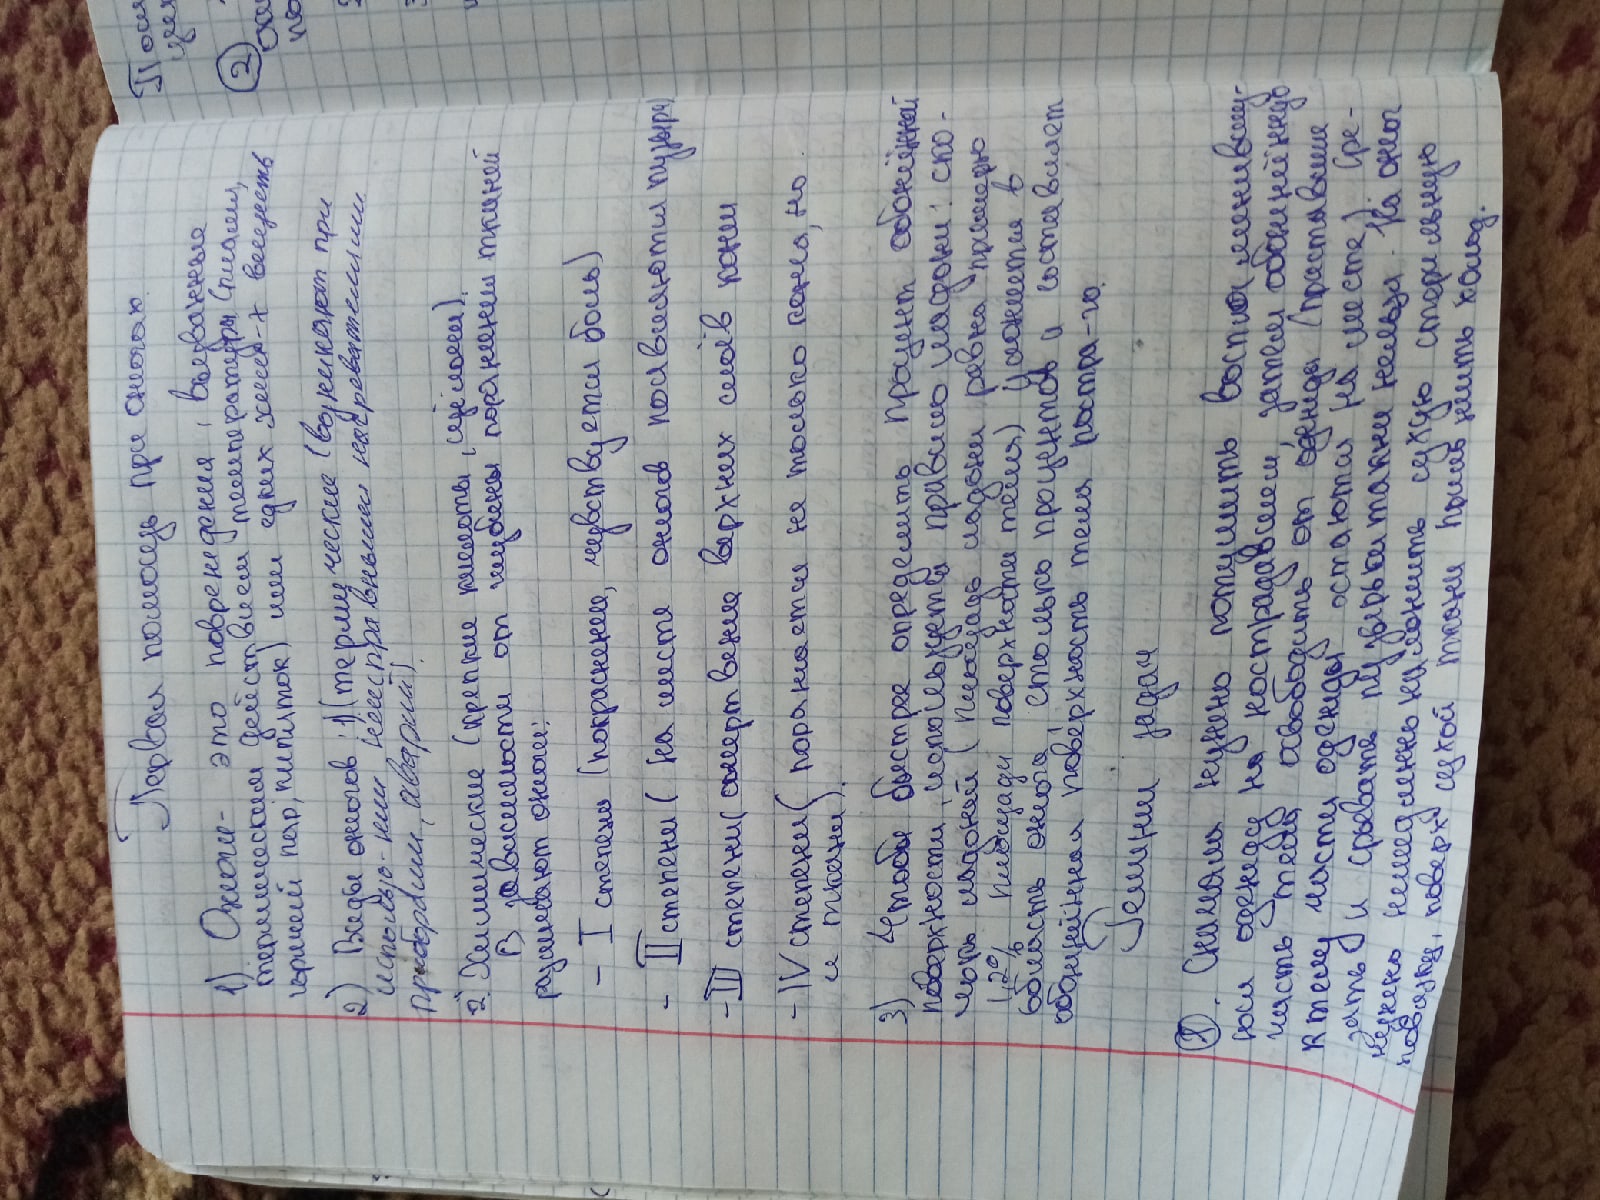 Первая помощь при ожогах.
1) Ожоги- это повреждения, вызванные
термическим действием температуры (пламя,
горячей пар, кипяток) или едких хим-х веществ
2) Виды ожогов: 1) термические (возникают при
использо-нии неисправными нагревательными
приборами, аварий).
2. Химические (крепкие кислоты, щёлочи).
В зависимости от глубины поражения тканей
различают ожоги:
- I степень (покраснение, чувствуется боль)
- II степени (на месте ожогов появляются пузыри)
- III степени (омертвение верхних слоёв кожи
- IV степени (поражается не только кожа, но
и ткани).
3) Чтобы быстрее определить процент обожжённой
поверхности, используется правило ладони: ско-
лько ладоней (площадь ладони равна примерно
1,2% площади поверхности тела) уместится в
область ожога столько процентов и составляет
обожжённая поверхность тела постра-го.
Решении задач
1. Сначала нужно потушить воспламенившу-
юся одежду на пострадавшем, затем обожжённую
часть тела освободить от одежды (приставшие
к телу части одежды остаются на месте). Сре-
зать и срывать пузырьки также нельзя. На ожог
нужно немедленно наложить сухую стерильную
повязку, поверх сухой ткани приложить холод.
2